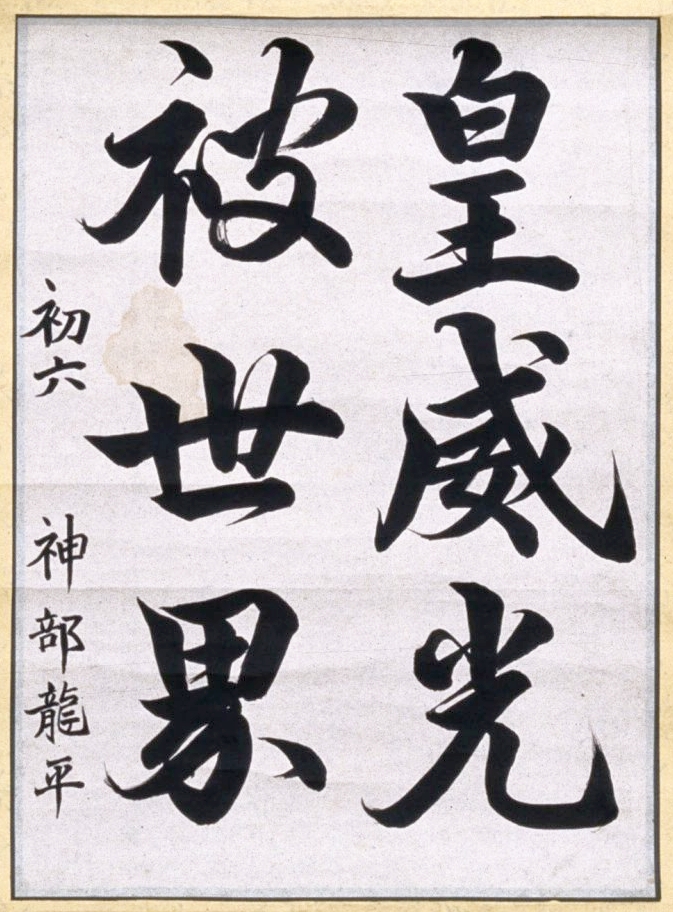 皇威光
被世界
初六 神部龍平